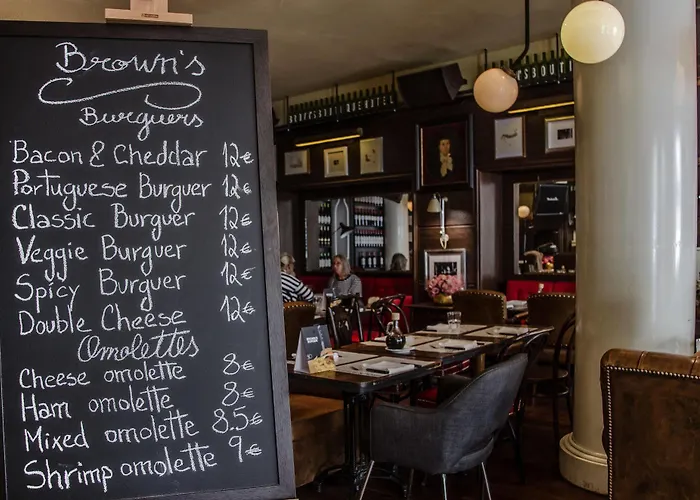 Brown's
Burguers
Bacon & Cheddar 12€
Portuguese Burguer 12€
Classic Burguer 12€
Veggie Burguer 12€
Spicy Burguer 12€
Double Cheese 12€
Omolettes
Cheese omolette 8€
Ham omolette 8€
Mixed omolette 8.5€
Shrimp omolette 9€